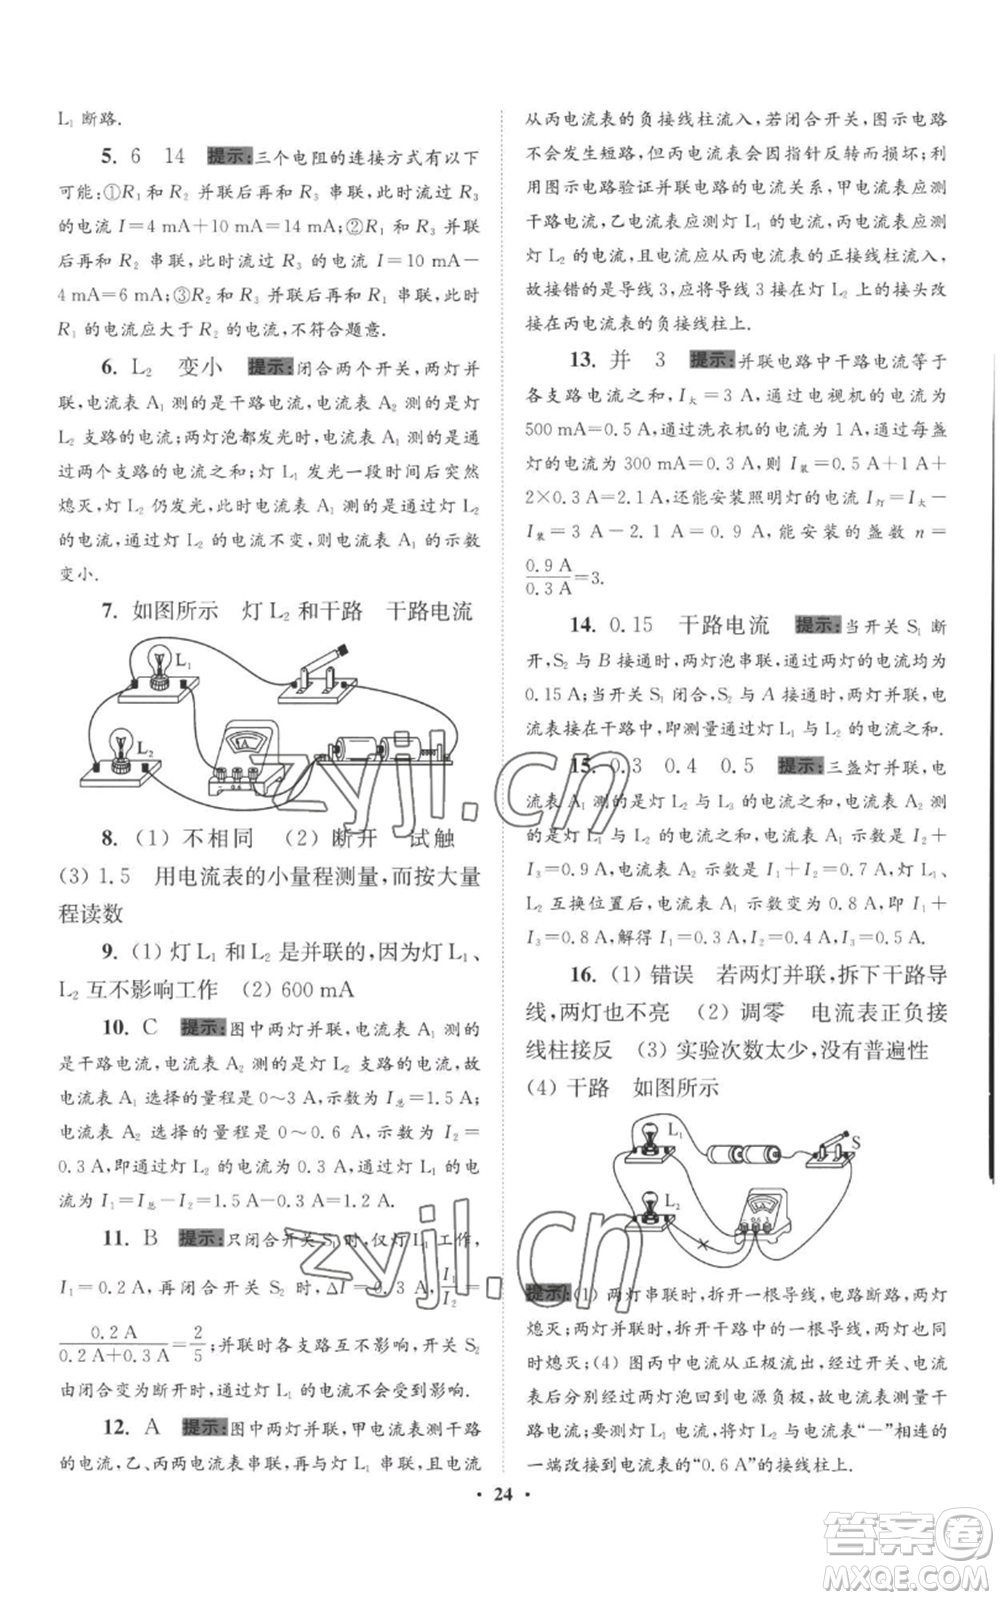 L₁ 断路.
5. 6　14　提示:三个电阻的连接方式有以下
可能:①R₁ 和 R₂ 并联后再和 R₃ 串联,此时流过 R₃
的电流 I=4 mA+10 mA=14 mA;②R₁ 和 R₃ 并联
后再和 R₂ 串联,此时流过 R₃ 的电流 I=10 mA-
4 mA=6 mA;③R₂ 和 R₃ 并联后再和 R₁ 串联,此时
R₁ 的电流应大于 R₂ 的电流,不符合题意.
6. L₂　变小　提示:闭合两个开关,两灯并
联,电流表 A₁ 测的是干路电流,电流表 A₂ 测的是灯
L₂ 支路的电流;两灯泡都发光时,电流表 A₁ 测的是通
过两个支路的电流之和;灯 L₁ 发光一段时间后突然
熄灭,灯 L₂ 仍发光,此时电流表 A₁ 测的是通过灯 L₂
的电流,由于通过灯 L₂ 的电流不变,则电流表 A₁ 的示数
变小.
7. 如图所示　灯 L₂ 和干路　干路电流
L₁
L₂
A
8. (1) 不相同　(2) 断开　试触
(3) 1.5　用电流表的小量程测量,而按大量
程读数
9. (1) 灯 L₁ 和 L₂ 是并联的,因为灯 L₁、
L₂ 互不影响工作　(2) 600 mA
10. C　提示:图中两灯并联,电流表 A₁ 测的
是干路电流,电流表 A₂ 测的是灯 L₂ 支路的电流,故
电流表 A₁ 选择的量程是 0～3 A,示数为 I总=1.5 A;
电流表 A₂ 选择的量程是 0～0.6 A,示数为 I₂=
0.3 A,即通过灯 L₂ 的电流为 0.3 A,则通过灯 L₁ 的电
流为 I₁=I总-I₂=1.5 A-0.3 A=1.2 A.
11. B　提示:只闭合开关 S₁ 时,仅灯 L₁ 工作,
I₁=0.2 A,再闭合开关 S₂ 时,ΔI=0.3 A,I₁/I₂=
0.2 A/(0.2 A+0.3 A)=2/5;并联时各支路互不影响,开关 S₂
由闭合变为断开时,通过灯 L₁ 的电流不会受到影响.
12. A　提示:图中两灯并联,甲电流表测干路
的电流,乙、丙两电流表串联,再与灯 L₁ 串联,且电流
从丙电流表的负接线柱流入,若闭合开关,图示电路
不会发生短路,但丙电流表会因指针反转而损坏;利
用图示电路验证并联电路的电流关系,甲电流表应测
干路电流,乙电流表应测灯 L₁ 的电流,丙电流表应测
灯 L₂ 的电流,且电流应从丙电流表的正接线柱流入,
故接错的是导线 3,应将导线 3 接在灯 L₂ 上的接头改
接在丙电流表的负接线柱上.
13. 并　3　提示:并联电路中干路电流等于
各支路电流之和,最大电流 I大=3 A,通过电视机的电流为
500 mA=0.5 A,通过洗衣机的电流为 1 A,通过每盏
灯的电流为 300 mA=0.3 A,则 I装=0.5 A+1 A+
2×0.3 A=2.1 A,还能安装照明灯的电流 I灯=I大-
I装=3 A-2.1 A=0.9 A,能安装的盏数 n=
0.9 A/0.3 A=3.
14. 0.15　干路电流　提示:当开关 S₁ 断
开,S₂ 与 B 接通时,两灯泡串联,通过两灯的电流均为
0.15 A;当开关 S₁ 闭合,S₂ 与 A 接通时,两灯并联,电
流表接在干路中,即测量通过灯 L₁ 与 L₂ 的电流之和.
15. 0.3　0.4　0.5　提示:三盏灯并联,电
流表 A₁ 测的是通过灯 L₁ 与 L₂ 的电流之和,电流表
A₂ 测的是通过灯 L₂ 与 L₃ 的电流之和,电流表 A 测
的是干路的电流,因此电流表 A₁ 示数应是 I₂+
I₃=0.9 A,电流表 A₂ 示数是 I₁+I₂=0.7 A,灯 L₁、
L₂ 互换位置后,电流表 A₁ 示数变为 0.8 A,即 I₁+
I₃=0.8 A,解得 I₁=0.3 A,I₂=0.4 A,I₃=0.5 A.
16. (1) 错误　若两灯并联,拆下干路导
线,两灯也不亮　(2) 调零　电流表正负接
线柱接反　(3) 实验次数太少,没有普遍性
(4) 干路　如图所示
L₁
S
L₂
提示:(1) 两灯串联时,拆开一根导线,电路断路,两灯
熄灭;两灯并联时,拆开干路中的一根导线,两灯也会
同时熄灭;(4) 图丙中电流从正极流出,经开关、电流
表后分别经过两灯泡回到电源负极,故电流表测量干
路电流;要测灯 L₁ 电流,将灯 L₂ 与电流表“-”相连的
一端改接到电流表的“0.6 A”的接线柱上.
24
zyjl.cn
zyjl.cn
答案卷
MXQE.COM